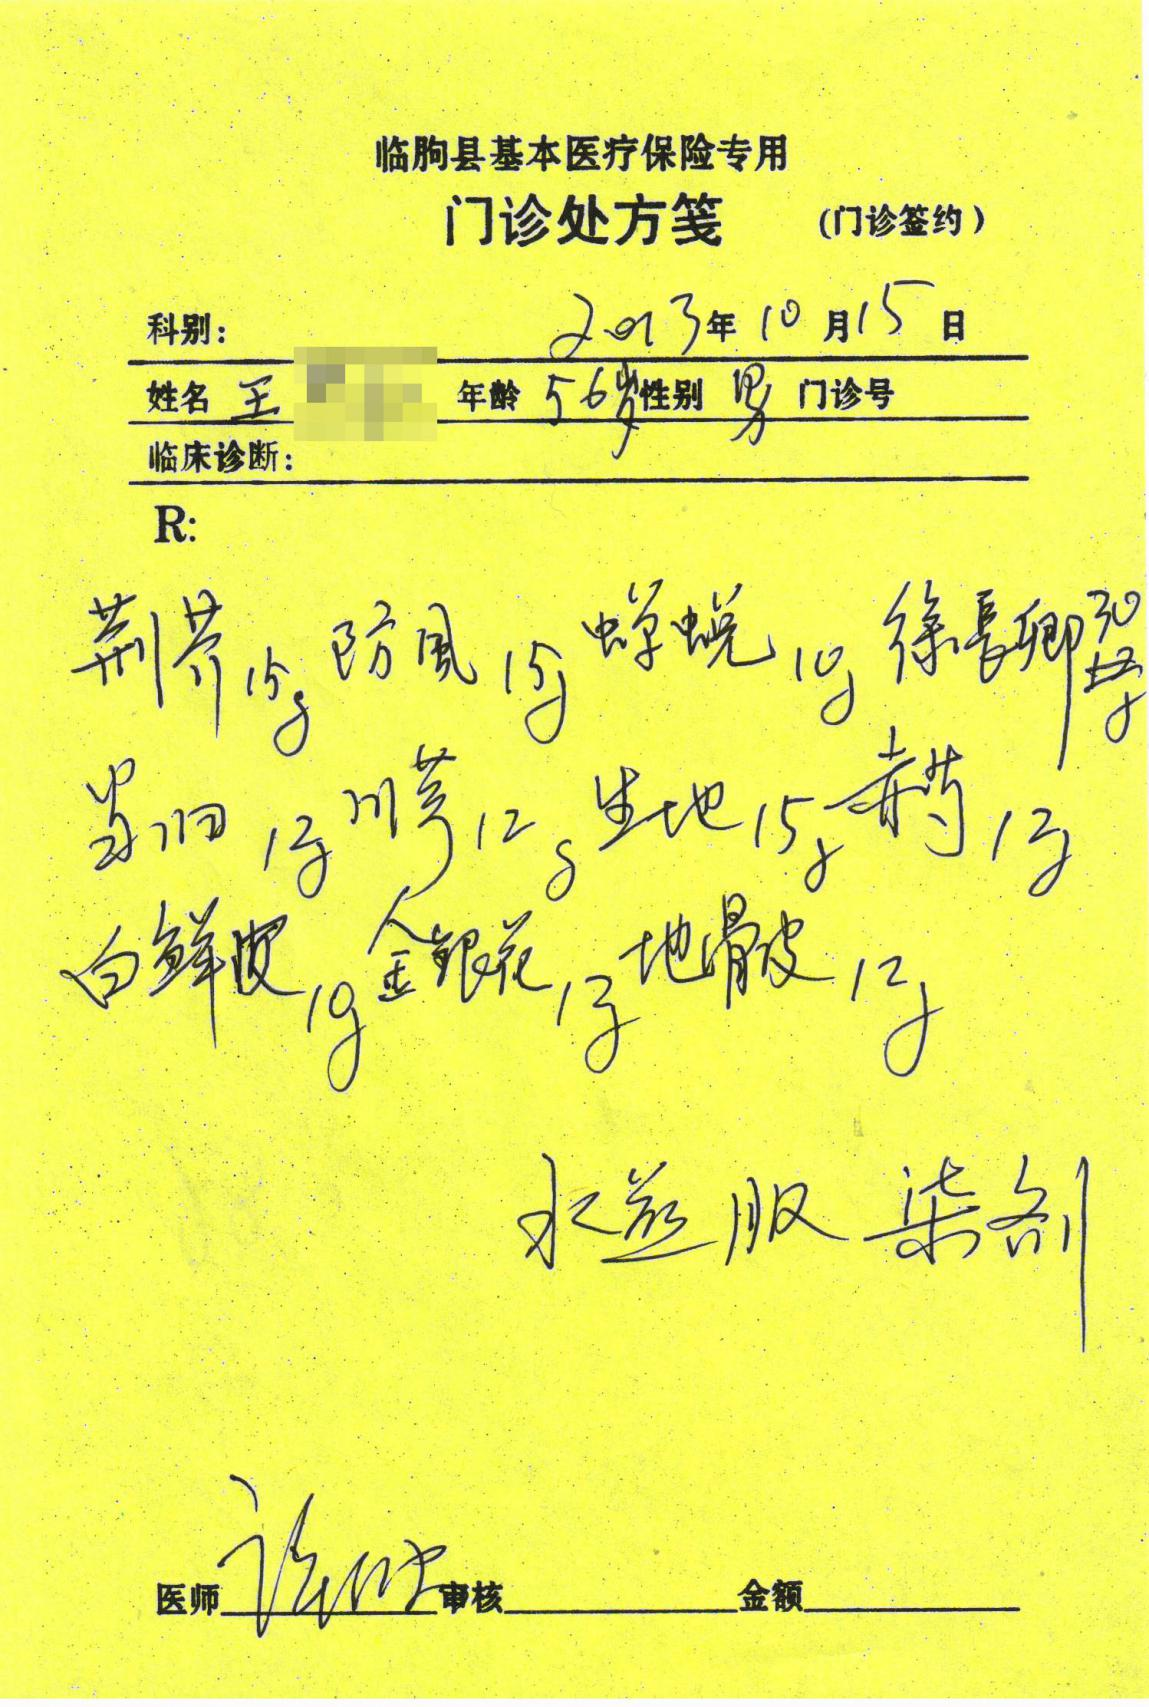 临朐县基本医疗保险专用
门诊处方笺 (门诊签约)
科别: 2013年10月15日
姓名 王 年龄 56岁 性别 男 门诊号
临床诊断:
R:
荆芥15g 防風15g 蝉蜕10g 徐長卿30g
当归12g 川芎12g 生地15g 赤芍12g
白鲜皮10g 金银花12g 地骨皮12g
水煎服 柒剂
医师 审核 金额